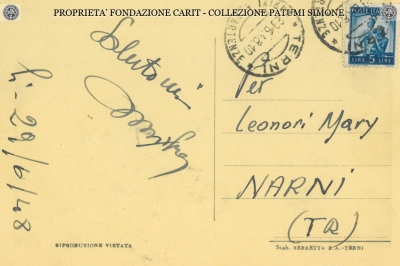 PROPRIETA' FONDAZIONE CARIT - COLLEZIONE PATUMI SIMONE
Saluti
li - 29/6/48
TERNI
PARTENZE
LIRE 5 LIRE
Per
Leonori Mary
NARNI
(TR)
RIPRODUZIONE VIETATA
Stab. SERAETTA S.A. - TERNI